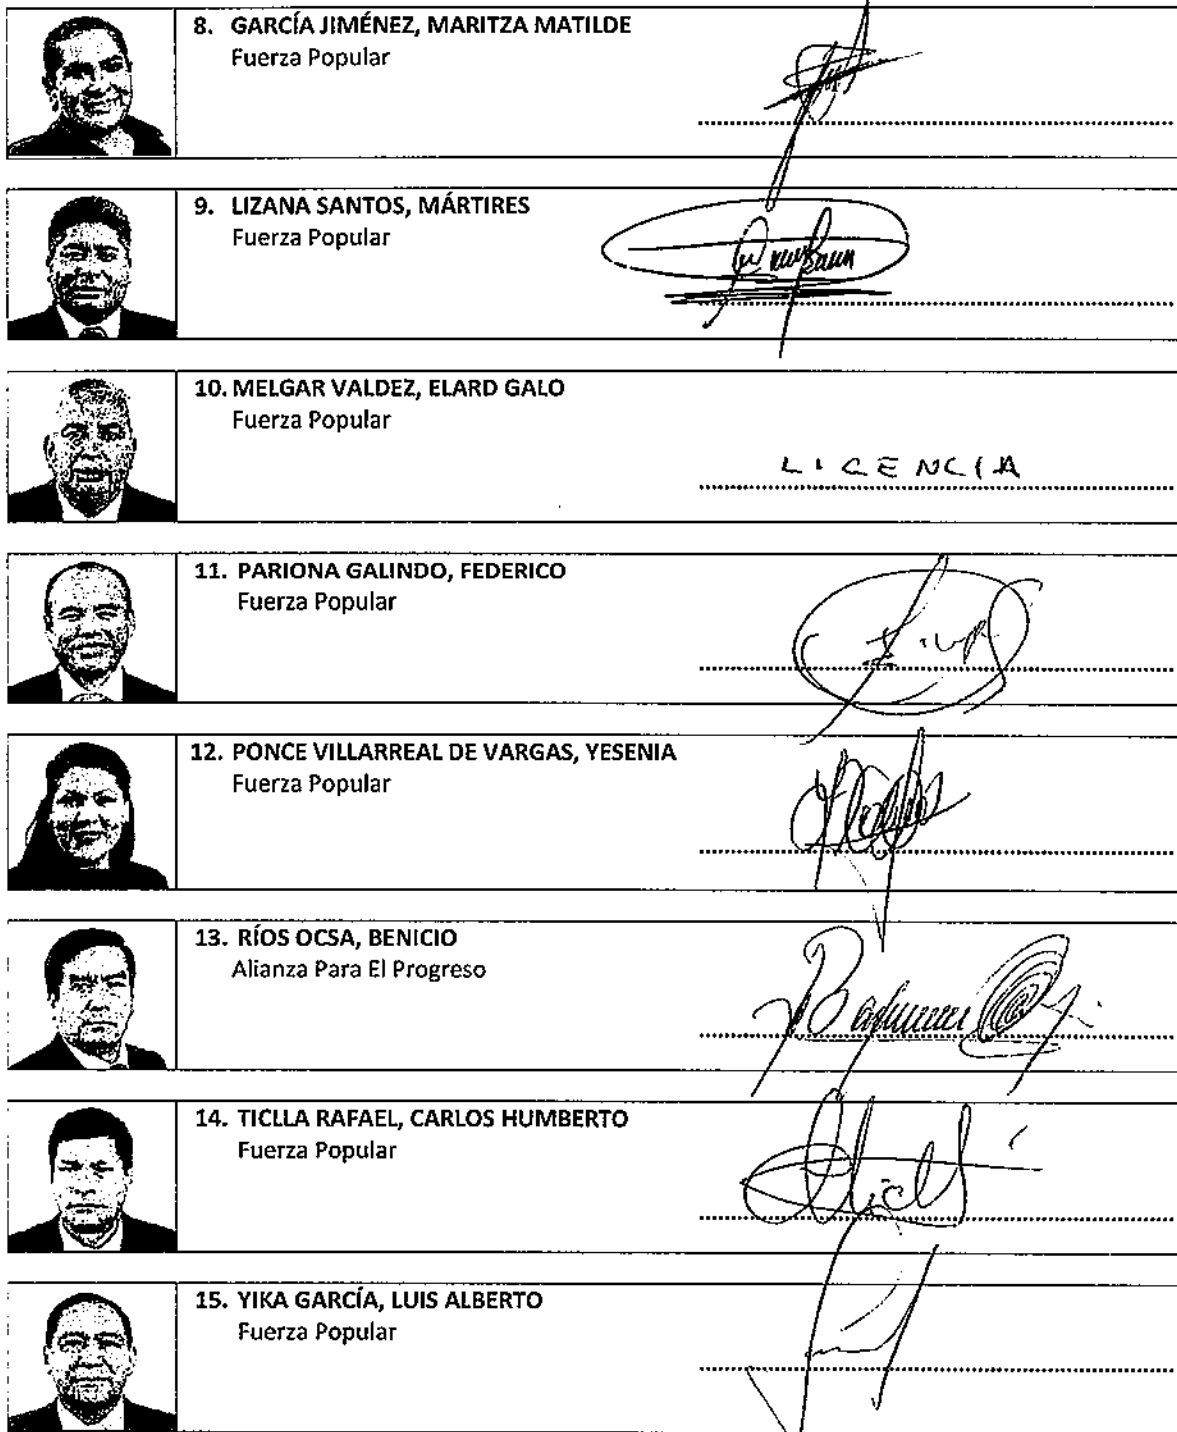 8. GARCÍA JIMÉNEZ, MARITZA MATILDE
Fuerza Popular
9. LIZANA SANTOS, MÁRTIRES
Fuerza Popular
10. MELGAR VALDEZ, ELARD GALO
Fuerza Popular
LICENCIA
11. PARIONA GALINDO, FEDERICO
Fuerza Popular
12. PONCE VILLARREAL DE VARGAS, YESENIA
Fuerza Popular
13. RÍOS OCSA, BENICIO
Alianza Para El Progreso
14. TICLLA RAFAEL, CARLOS HUMBERTO
Fuerza Popular
15. YIKA GARCÍA, LUIS ALBERTO
Fuerza Popular